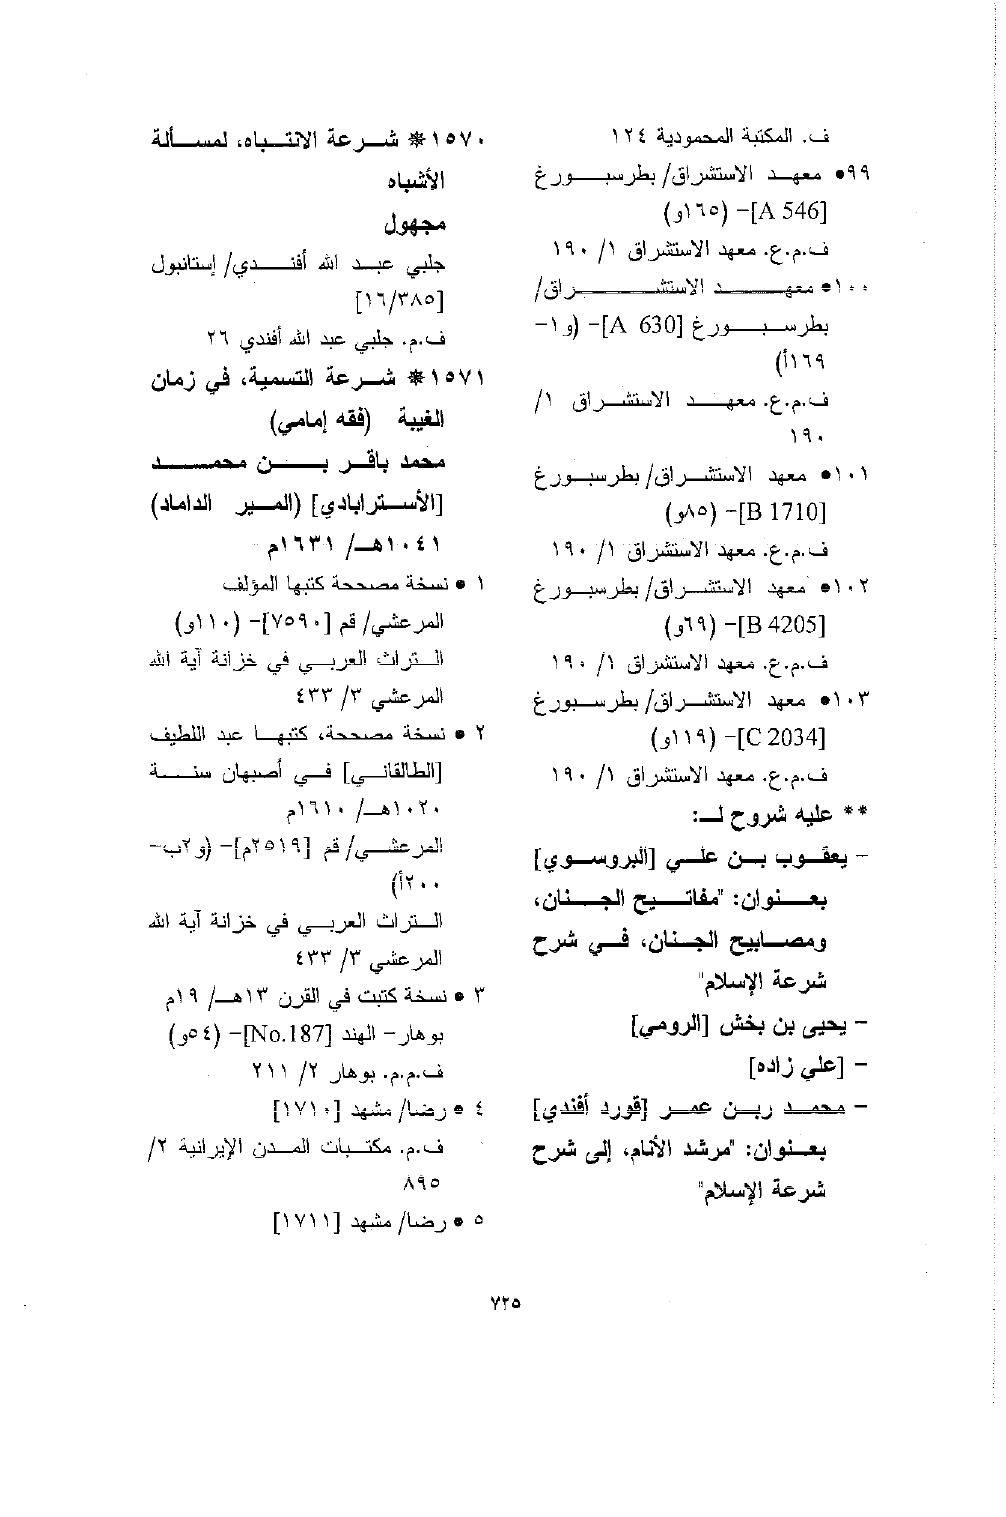 ف. المكتبة المحمودية ١٢٤
٩٩• معهد الاستشراق/ بطرسبورغ
[A 546]- (١٦٥و)
ف.م.ع. معهد الاستشراق ١/ ١٩٠
١٠٠• معهد الاستشراق/
بطرسبورغ [A 630]- (و١-
١٦٩أ)
ف.م.ع. معهد الاستشراق ١/
١٩٠
١٠١• معهد الاستشراق/ بطرسبورغ
[B 1710]- (٨٥و)
ف.م.ع. معهد الاستشراق ١/ ١٩٠
١٠٢• معهد الاستشراق/ بطرسبورغ
[B 4205]- (٦٩و)
ف.م.ع. معهد الاستشراق ١/ ١٩٠
١٠٣• معهد الاستشراق/ بطرسبورغ
[C 2034]- (١١٩و)
ف.م.ع. معهد الاستشراق ١/ ١٩٠
** عليه شروح لـ:
- يعقوب بن علي [البروسوي]
بعنوان: "مفاتيح الجنان،
ومصابيح الجنان، في شرح
شرعة الإسلام"
- يحيى بن بخش [الرومي]
- [علي زاده]
- محمد ربن عمر [قورد أفندي]
بعنوان: "مرشد الأنام، إلى شرح
شرعة الإسلام"
١٥٧٠* شرعة الانتباه، لمسألة
الأشباه
مجهول
جلبي عبد الله أفندي/ إستانبول
[١٦/٣٨٥]
ف.م. جلبي عبد الله أفندي ٢٦
١٥٧١* شرعة التسمية، في زمان
الغيبة (فقه إمامي)
محمد باقر بن محمد
[الأسترابادي] (المير الداماد)
١٠٤١هـ/ ١٦٣١م
١ • نسخة مصححة كتبها المؤلف
المرعشي/ قم [٧٥٩٠]- (١١٠و)
التراث العربي في خزانة آية الله
المرعشي ٣/ ٤٣٣
٢ • نسخة مصححة، كتبها عبد اللطيف
[الطالقاني] في أصبهان سنة
١٠٢٠هـ/ ١٦١٠م
المرعشي/ قم [٢٥١٩م]- (و٢ب-
٢٠٠أ)
التراث العربي في خزانة آية الله
المرعشي ٣/ ٤٣٣
٣ • نسخة كتبت في القرن ١٣هـ/ ١٩م
بوهار- الهند [No.187]- (٥٤و)
ف.م.م. بوهار ٢/ ٢١١
٤ • رضا/ مشهد [١٧١٠]
ف.م. مكتبات المدن الإيرانية ٢/
٨٩٥
٥ • رضا/ مشهد [١٧١١]
٧٢٥